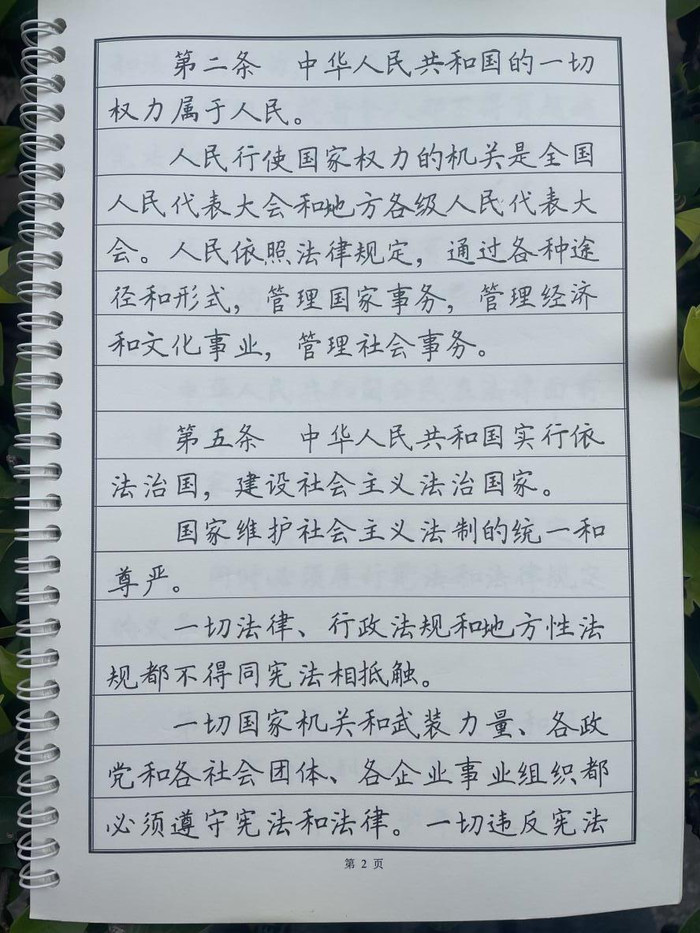 第二条　中华人民共和国的一切
权力属于人民。
人民行使国家权力的机关是全国
人民代表大会和地方各级人民代表大
会。人民依照法律规定，通过各种途
径和形式，管理国家事务，管理经济
和文化事业，管理社会事务。
第五条　中华人民共和国实行依
法治国，建设社会主义法治国家。
国家维护社会主义法制的统一和
尊严。
一切法律、行政法规和地方性法
规都不得同宪法相抵触。
一切国家机关和武装力量、各政
党和各社会团体、各企业事业组织都
必须遵守宪法和法律。一切违反宪法
第 2 页